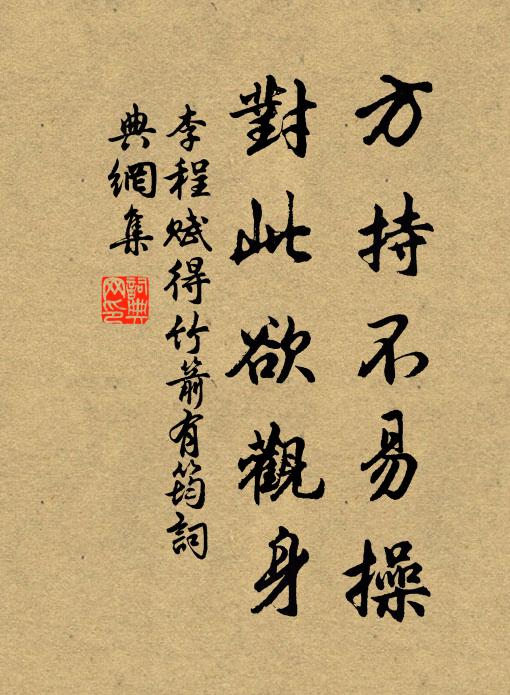 方持不易操
對此欲觀身
李程赋得竹箭有筠詞
典網集
詞典
网印